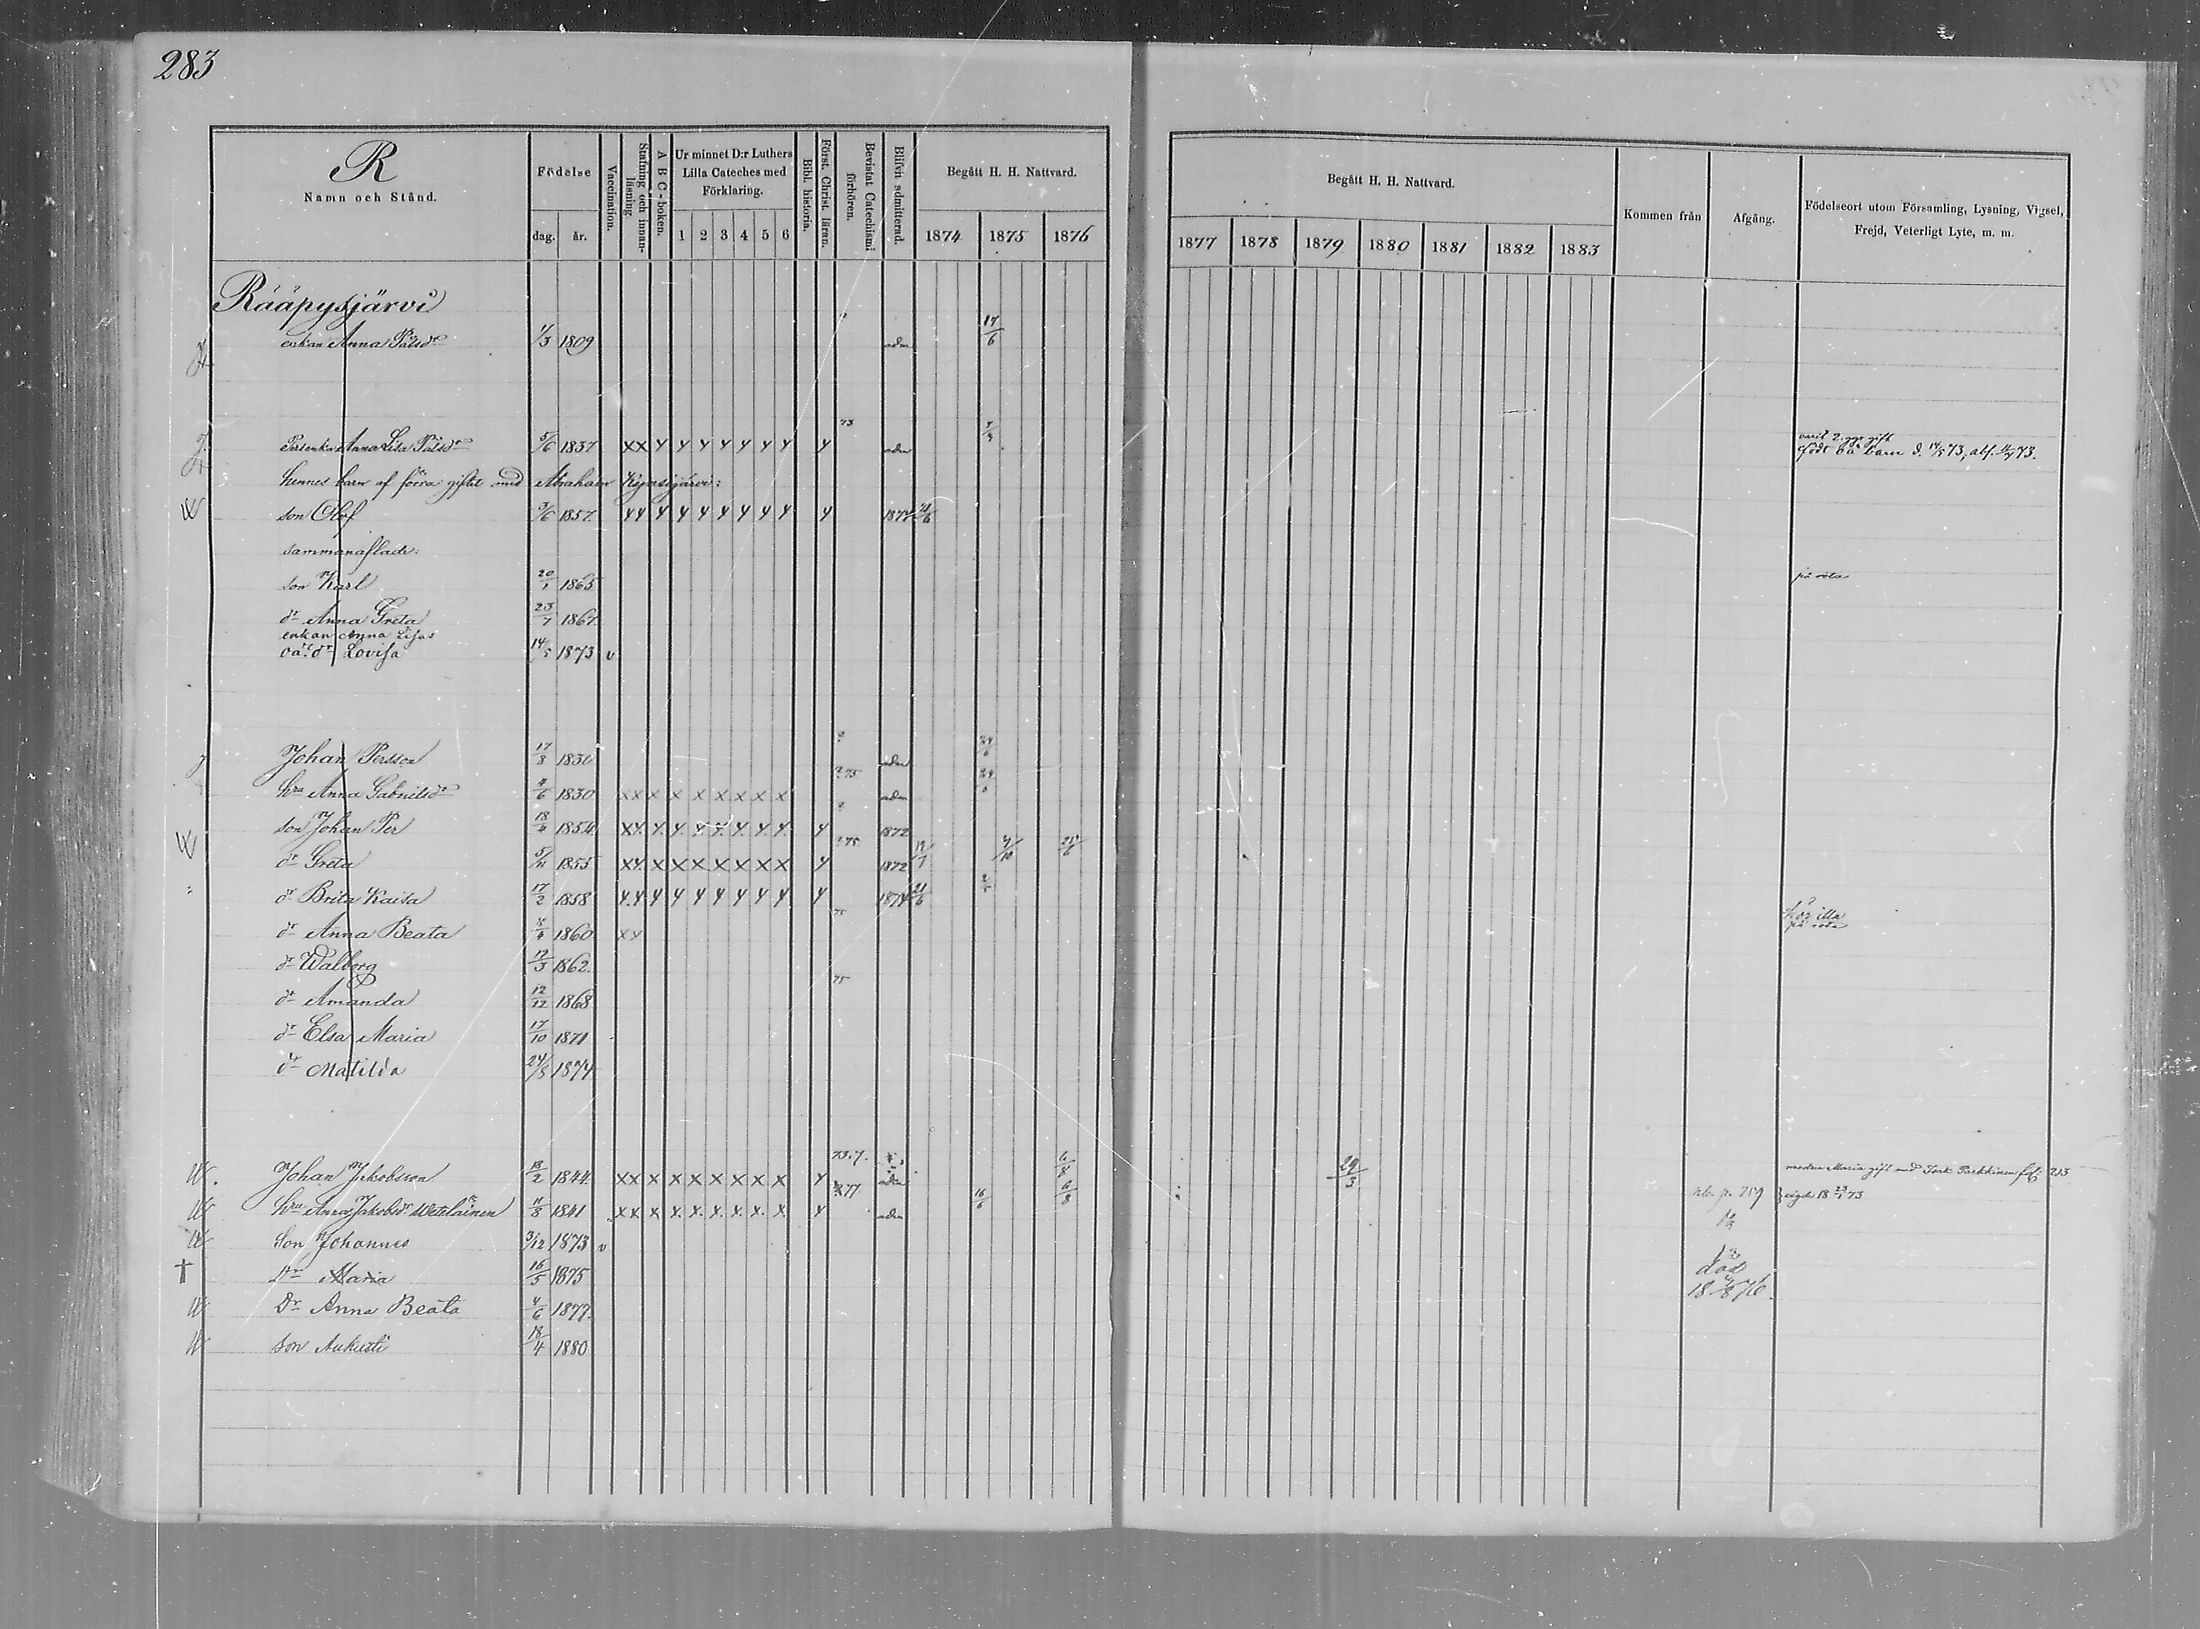 283
R
Namn och Stånd.
Födelse
dag.
år.
Vaccination.
Stafning och innan-läsning.
A B C-boken.
Ur minnet D:r Luthers
Lilla Cateches med
Förklaring.
1 2 3 4 5 6
Bibl. historia.
Först. Christ. läran.
Bevistat Catechismi förhören.
Blifvit admitterad.
Begått H. H. Nattvard.
1874 1875 1876
Begått H. H. Nattvard.
1877 1878 1879 1880 1881 1882 1883
Kommen från
Afgång.
Födelseort utom Församling, Lysning, Vigsel,
Frejd, Veterligt Lyte, m. m.
Rääpysjärvi
enkan Anna Pålsdr 1809 adm 17/6
Anna Lisa Pålsdr 5/6 1837 x x y y y y y y y y adm
varit 2. ggr gift
födt oä barn d. 14/5 73, abs. 73.
hennes barn af förra giftet med Abraham
son Olof 3/6 1857 y y y y y y y y y y 1874 21/6
sammanaflade:
son Karl 20/1 1865 på rota
dr Anna Greta 23/7 1867
enkan Anna Lisas
oä. dr Lovisa 14/5 1873 v
Johan Persson 17/8 1830 adm 24/6
hru Anna Gabrielsdr 4/6 1830 x x x x x x x x x 75 adm 24/6
son Johan Per 18/4 1854 x y y y y y y y y y 1872
dr Greta 5/11 1855 x y x x x x x x x y 75 1872 12/7 9/10 25/6
dr Brita Kaisa 17/2 1858 y y y y y y y y y y 1874 21/6
dr Anna Beata 4/4 1860 x y 75 hör illa
på rota
dr Walborg 12/3 1862
dr Amanda 12/12 1868 75
dr Elsa Maria 17/10 1871
dr Matilda 24/8 1874
Johan Jakobsson 13/2 1844 x x x x x x x x x y 73.7. adm 6/8 29/3 modren Maria gift med Isak Parkkinen fol: 213
hru Anna Jakobsdr Wetelainen 11/8 1841 x x x x x x x x x y 77 adm 16/6 6/8 nb. p. 759 vigde 18 73
Son Johannes 3/12 1873 v
Dr Maria 16/5 1875 död
18 76.
Dr Anna Beata 4/6 1877
son Aukusti 18/4 1880